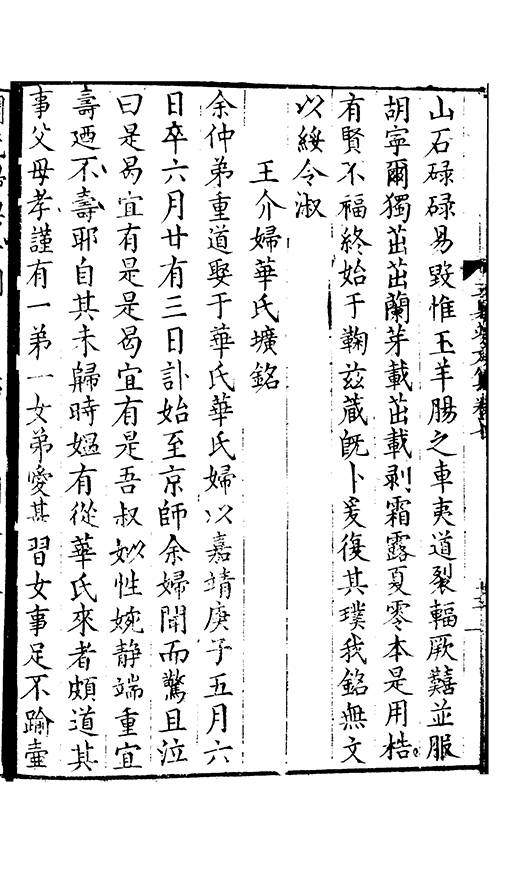 山石碌碌易毀惟玉羊腸之車夷道裂輻厥囏並服
胡寧爾獨茁茁蘭芽載茁載剥霜露夏零本是用梏
有賢不福終始于鞠兹蔵旣卜爰復其璞我銘無文
以綏令淑
王介婦華氏壙銘
余仲弟重道娶于華氏華氏婦以嘉靖庚子五月六
日卒六月廿有三日訃始至京師余婦聞而驚且泣
曰是曷宜有是是曷宜有是吾叔姒性婉静端重宜
壽迺不壽耶自其未歸時嫗有從華氏來者頗道其
事父母孝謹有一弟一女弟愛甚習女事足不踰壼